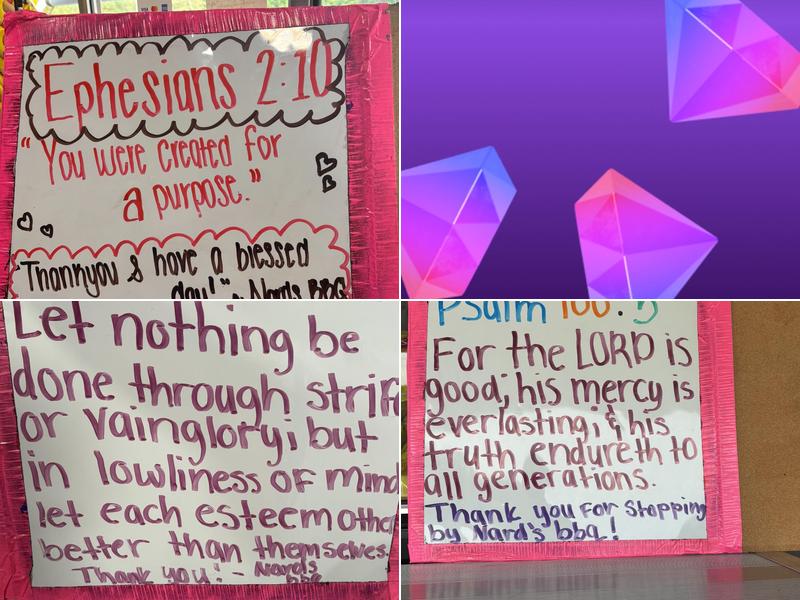 Ephesians 2:10
"You were created for
a purpose."
Thankyou & have a blessed
day!" ~ Nards BBQ
Let nothing be
done through strife
or vainglory; but
in lowliness of mind
let each esteem other
better than themselves.
Thank you! - Nards
bbq
Psalm 100:5
For the LORD is
good; his mercy is
everlasting; & his
truth endureth to
all generations.
Thank you for stopping
by Nard's bbq!